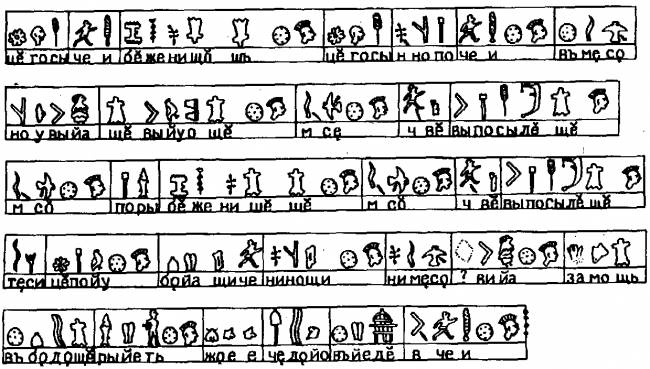 цѣ госы че и бѣ же ни щѣ шь цѣ госы н но по че и въ мѣ со
но у вы йа щѣ вы йу о щѣ м се ч вѣ вы по сы лѣ щѣ
м со по ры бѣ же ни ше щѣ м со ч вѣ вы по сы лѣ щѣ
те си цѣ по йу бо йа щи че ни но щи ни мѣ со ? ви йа за мо щь
въ бо до щѣ ры йе ть жо е е че до йо въ йе дѣ в че и